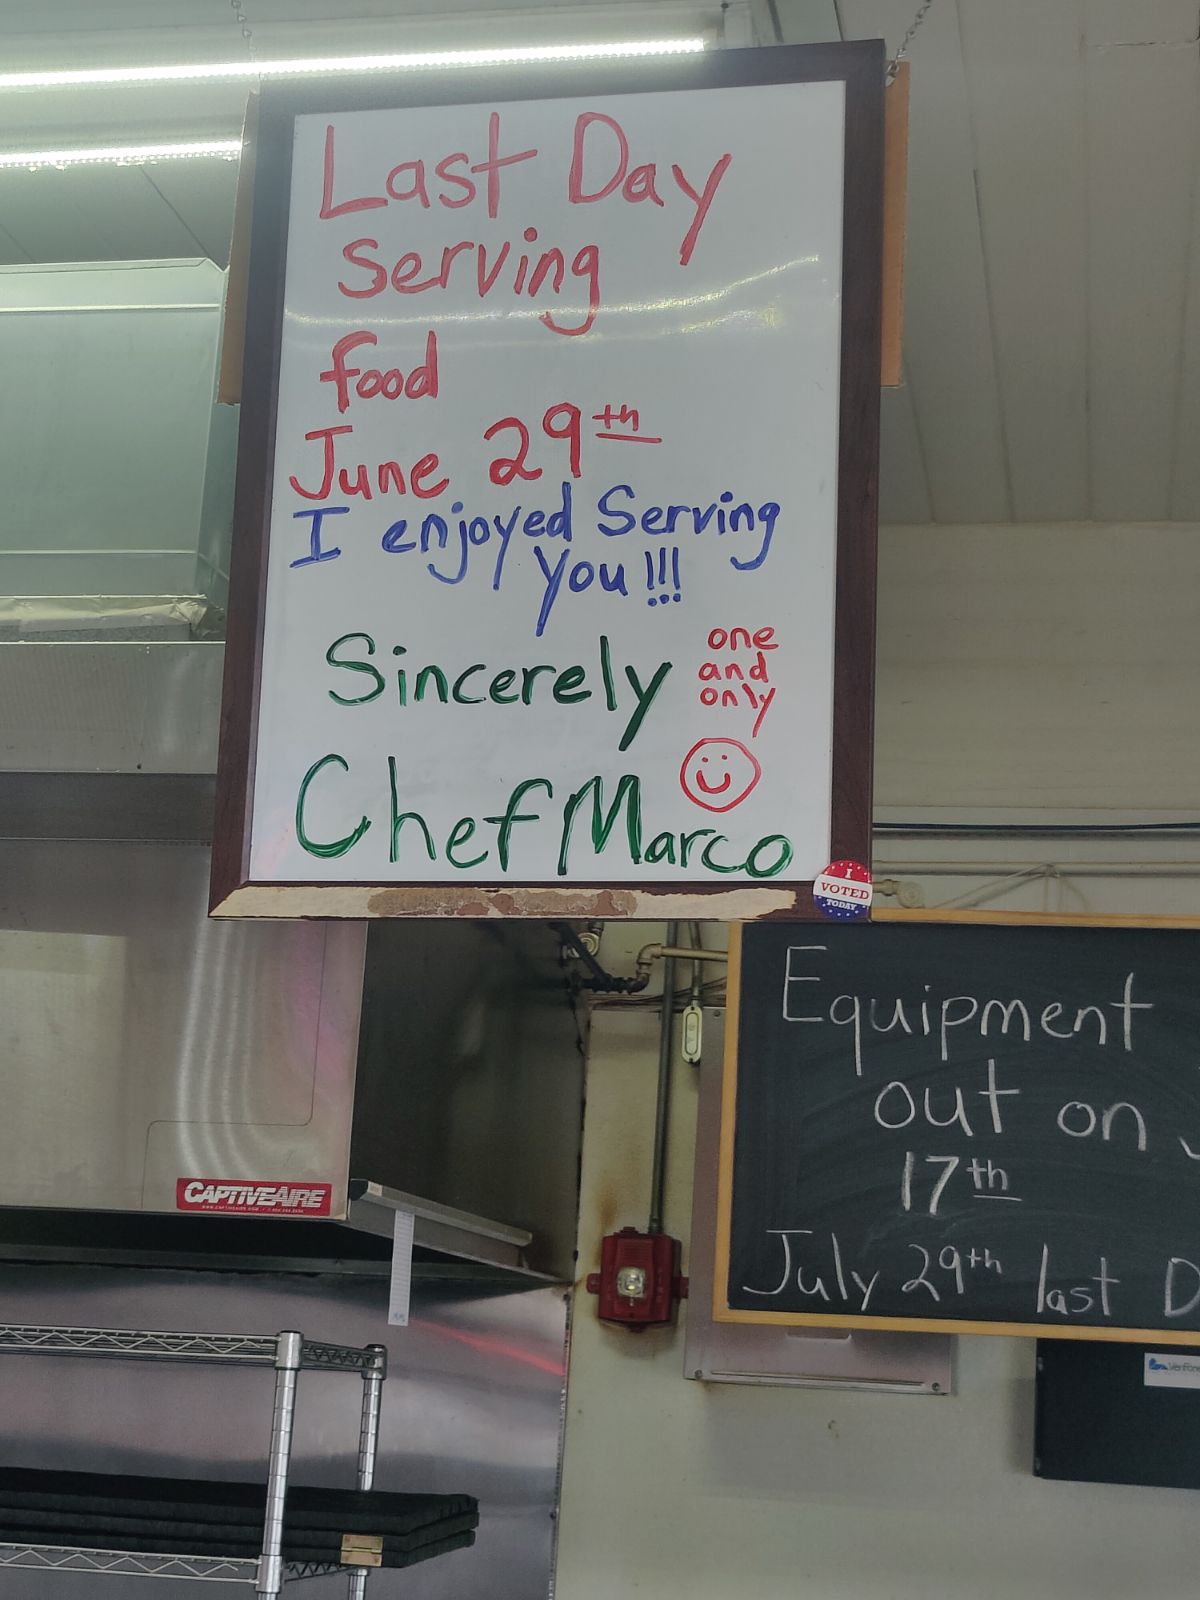 Last Day
Serving
food
June 29th
I enjoyed Serving
you!!!
Sincerely
one
and
only
Chef Marco
I
VOTED
TODAY
Equipment
out on
17th
July 29th last D
CAPTIVEAIRE
Verifone